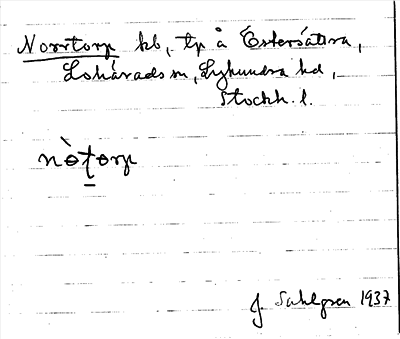 Norrtorp hb, tp å Estersätra,
Lohärads sn, Lyhundra hd,
Stockh. l.
nò̱ṯorp
J. Sahlgren 1937